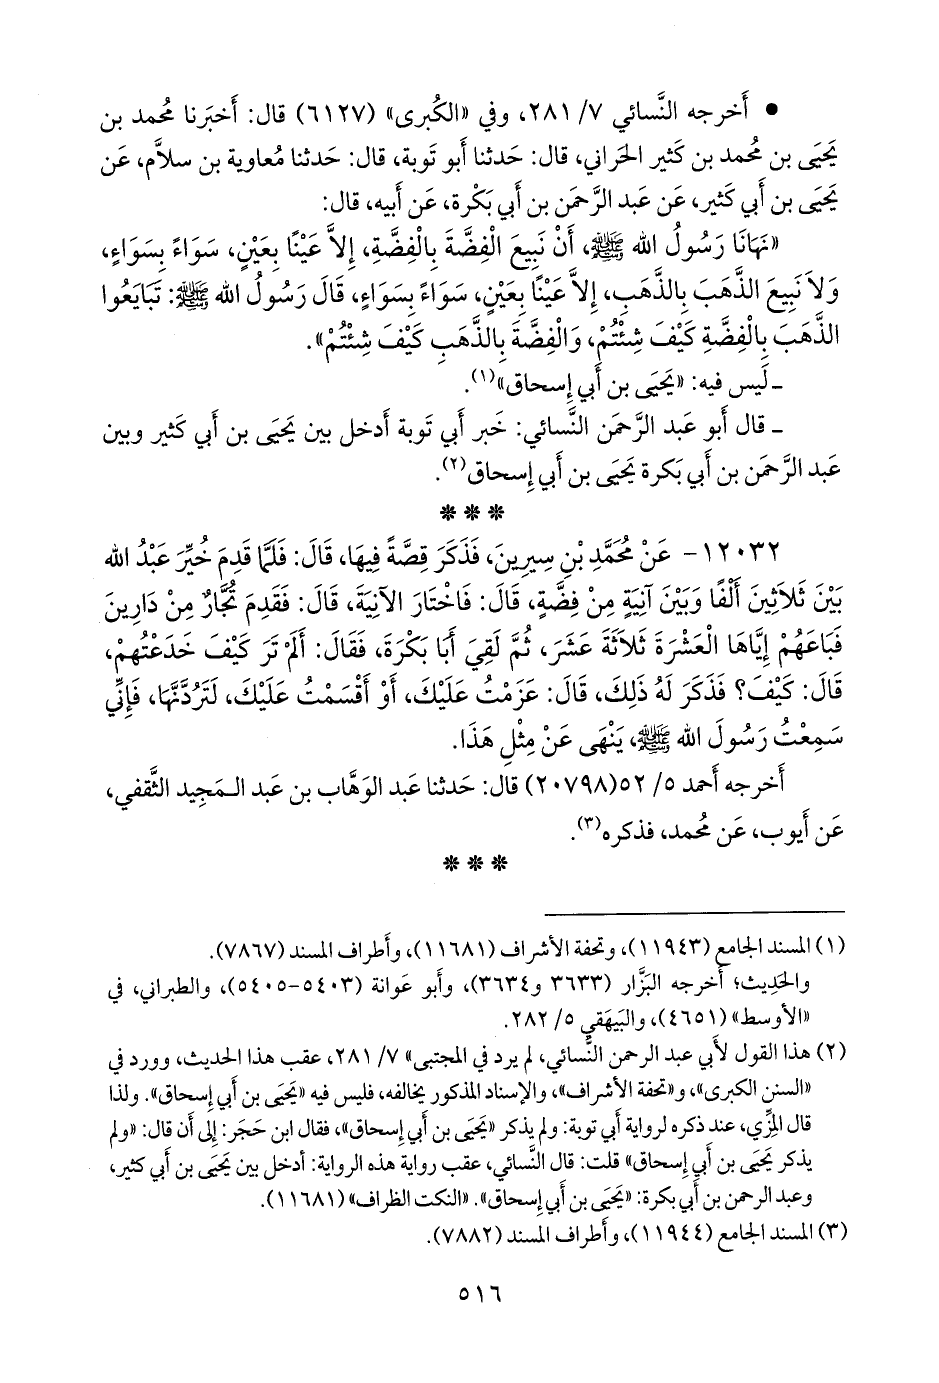 • أَخرجه النَّسائي ٧/ ٢٨١، وفي «الكُبرى» (٦١٢٧) قال: أَخبَرنا مُحمد بن
يَحيَى بن مُحمد بن كَثير الحَراني، قال: حَدثنا أَبو تَوبة، قال: حَدثنا مُعاوية بن سلاَّم، عَن
يَحيَى بن أَبي كَثير، عَن عَبد الرَّحمَن بن أَبي بَكْرة، عَن أَبيه، قال:
«نَهَانَا رَسُولُ الله ﷺ، أَنْ نَبِيعَ الْفِضَّةَ بِالْفِضَّةِ، إِلاَّ عَيْنًا بِعَيْنٍ، سَوَاءً بِسَوَاءٍ،
وَلاَ نَبِيعَ الذَّهَبَ بِالذَّهَبِ، إِلاَّ عَيْنًا بِعَيْنٍ، سَوَاءً بِسَوَاءٍ، قَالَ رَسُولُ الله ﷺ: تَبَايَعُوا
الذَّهَبَ بِالْفِضَّةِ كَيْفَ شِئْتُمْ، وَالْفِضَّةَ بِالذَّهَبِ كَيْفَ شِئْتُمْ».
ـ لَيس فيه: «يَحيَى بن أَبي إِسحاق»(١).
ـ قال أَبو عَبد الرَّحمَن النَّسائي: خَبر أَبي تَوبة أَدخل بين يَحيَى بن أَبي كَثير وبين
عَبد الرَّحمَن بن أَبي بَكرة يَحيَى بن أَبي إِسحاق(٢).
* * *
١٢٠٣٢- عَنْ مُحَمَّدِ بْنِ سِيرِينَ، فَذَكَرَ قِصَّةً فِيهَا، قَالَ: فَلَمَّا قَدِمَ خُيِّرَ عَبْدُ الله
بَيْنَ ثَلاَثِينَ أَلْفًا وَبَيْنَ آنِيَةٍ مِنْ فِضَّةٍ، قَالَ: فَاخْتَارَ الآنِيَةَ، قَالَ: فَقَدِمَ تُجَّارٌ مِنْ دَارِينَ
فَبَاعَهُمْ إِيَّاهَا الْعَشْرَةَ ثَلاَثَةَ عَشَرَ، ثُمَّ لَقِيَ أَبَا بَكْرَةَ، فَقَالَ: أَلَمْ تَرَ كَيْفَ خَدَعْتُهُمْ،
قَالَ: كَيْفَ؟ فَذَكَرَ لَهُ ذَلِكَ، قَالَ: عَزَمْتُ عَلَيْكَ، أَوْ أَقْسَمْتُ عَلَيْكَ، لَتَرُدَّنَّهَا، فَإِنِّي
سَمِعْتُ رَسُولَ الله ﷺ، يَنْهَى عَنْ مِثْلِ هَذَا.
أَخرجه أَحمد ٥/ ٥٢(٢٠٧٩٨) قال: حَدثنا عَبد الوَهَّاب بن عَبد الـمَجيد الثَّقفي،
عَن أَيوب، عَن مُحمد، فذكره(٣).
* * *
(١) المسند الجامع (١١٩٤٣)، وتحفة الأشراف (١١٦٨١)، وأَطراف المسند (٧٨٦٧).
والحَدِيث؛ أخرجه البَزَّار (٣٦٣٣ و٣٦٣٤)، وأَبو عَوانة (٥٤٠٣-٥٤٠٥)، والطبراني، في
«الأَوسط» (٤٦٥١)، والبَيهَقي ٥/ ٢٨٢.
(٢) هذا القول لأَبي عبد الرحمن النَّسائي، لم يرد في المجتبى» ٧/ ٢٨١، عقب هذا الحديث، وورد في
«السنن الكبرى»، و«تحفة الأشراف»، والإسناد المذكور يخالفه، فليس فيه «يَحيَى بن أَبي إِسحاق». ولذا
قال المِزِّي، عند ذكره لرواية أَبي توبة: ولم يذكر «يَحيَى بن أَبي إِسحاق»، فقال ابن حَجَر: إِلى أَن قال: «ولم
يذكر يَحيَى بن أَبي إِسحاق» قلت: قال النَّسائي، عقب رواية هذه الرواية: أدخل بين يَحيَى بن أَبي كثير،
وعبد الرحمن بن أَبي بكرة: «يَحيَى بن أَبي إِسحاق». «النكت الظراف» (١١٦٨١).
(٣) المسند الجامع (١١٩٤٤)، وأَطراف المسند (٧٨٨٢).
٥١٦